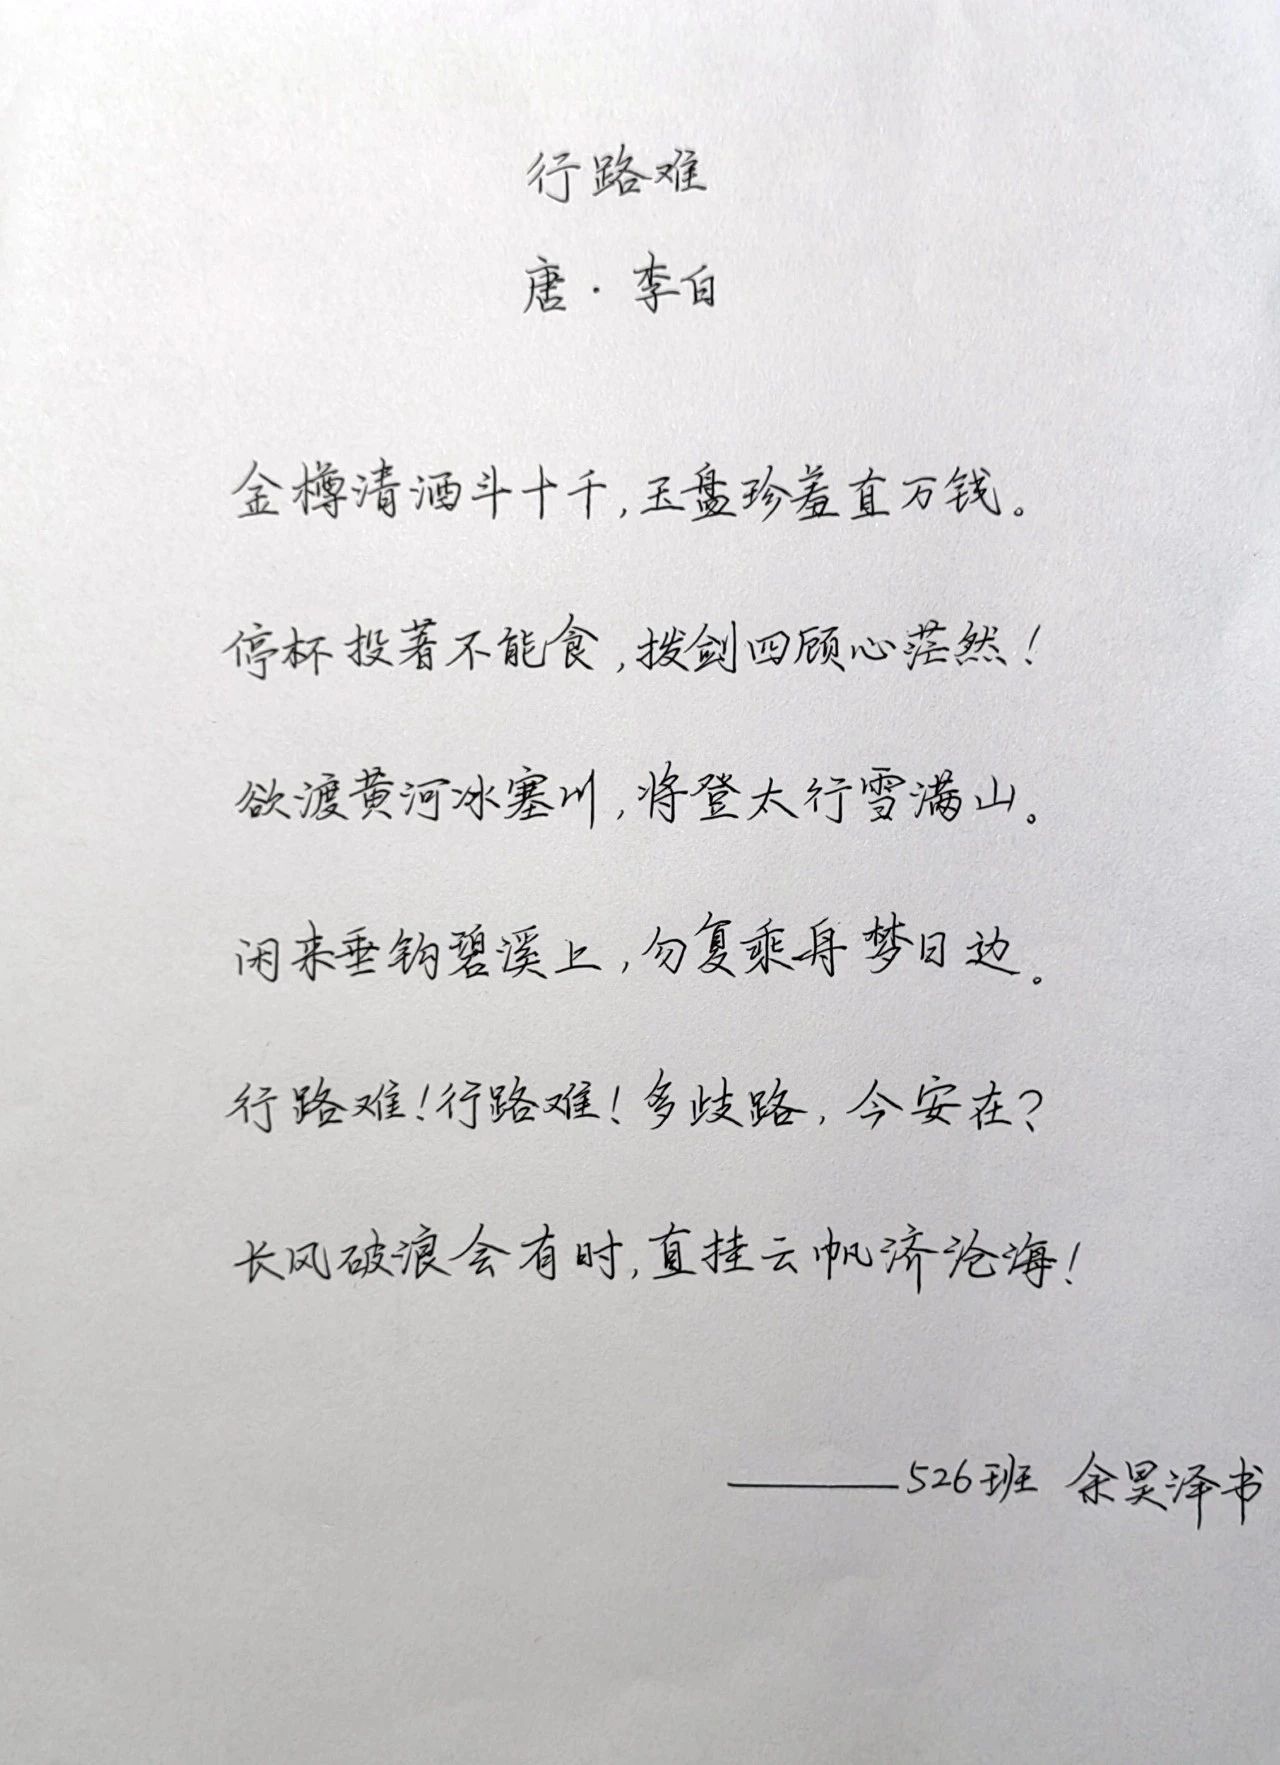 行路难
唐·李白
金樽清洒斗十千,玉盘珍羞直万钱。
停杯投著不能食,拨剑四顾心茫然!
欲渡黄河冰塞川,将登太行雪满山。
闲来垂钩碧溪上,勿复乘舟梦日边。
行路难!行路难!多歧路,今安在?
长风破浪会有时,直挂云帆济沧海!
——526班 余昊泽书